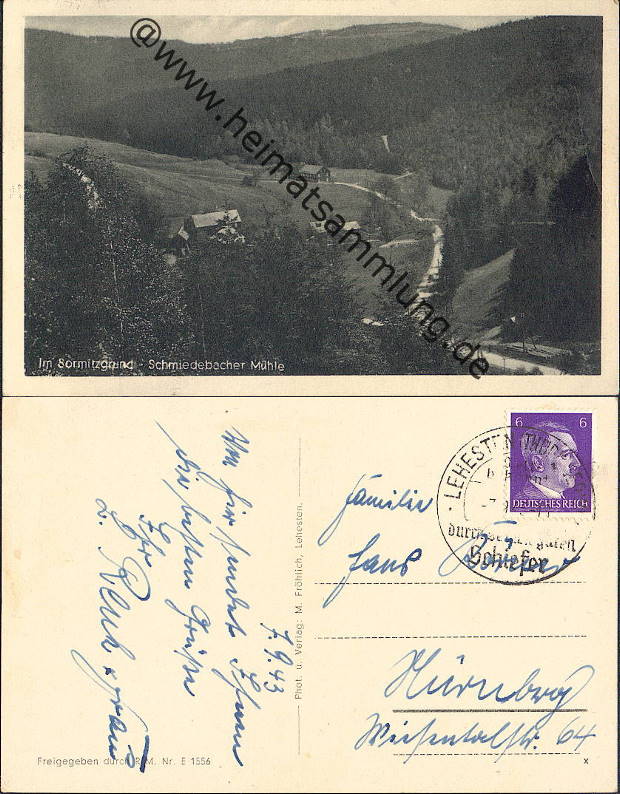 @www.heimatsammlung.de
Im Sormitzgrund - Schmiedebacher Mühle
Von hier sendet Ihnen
die besten Grüße
Ihr
u. Frau
7.9.43
Phot. u. Verlag: M. Fröhlich, Lehesten.
Freigegeben durch R.L.M. Nr. E 1556
6 6
DEUTSCHES REICH
LEHESTEN
durch seinen guten
Schiefer
Familie
Hans
Nürnberg
Wiesentalstr. 64
x